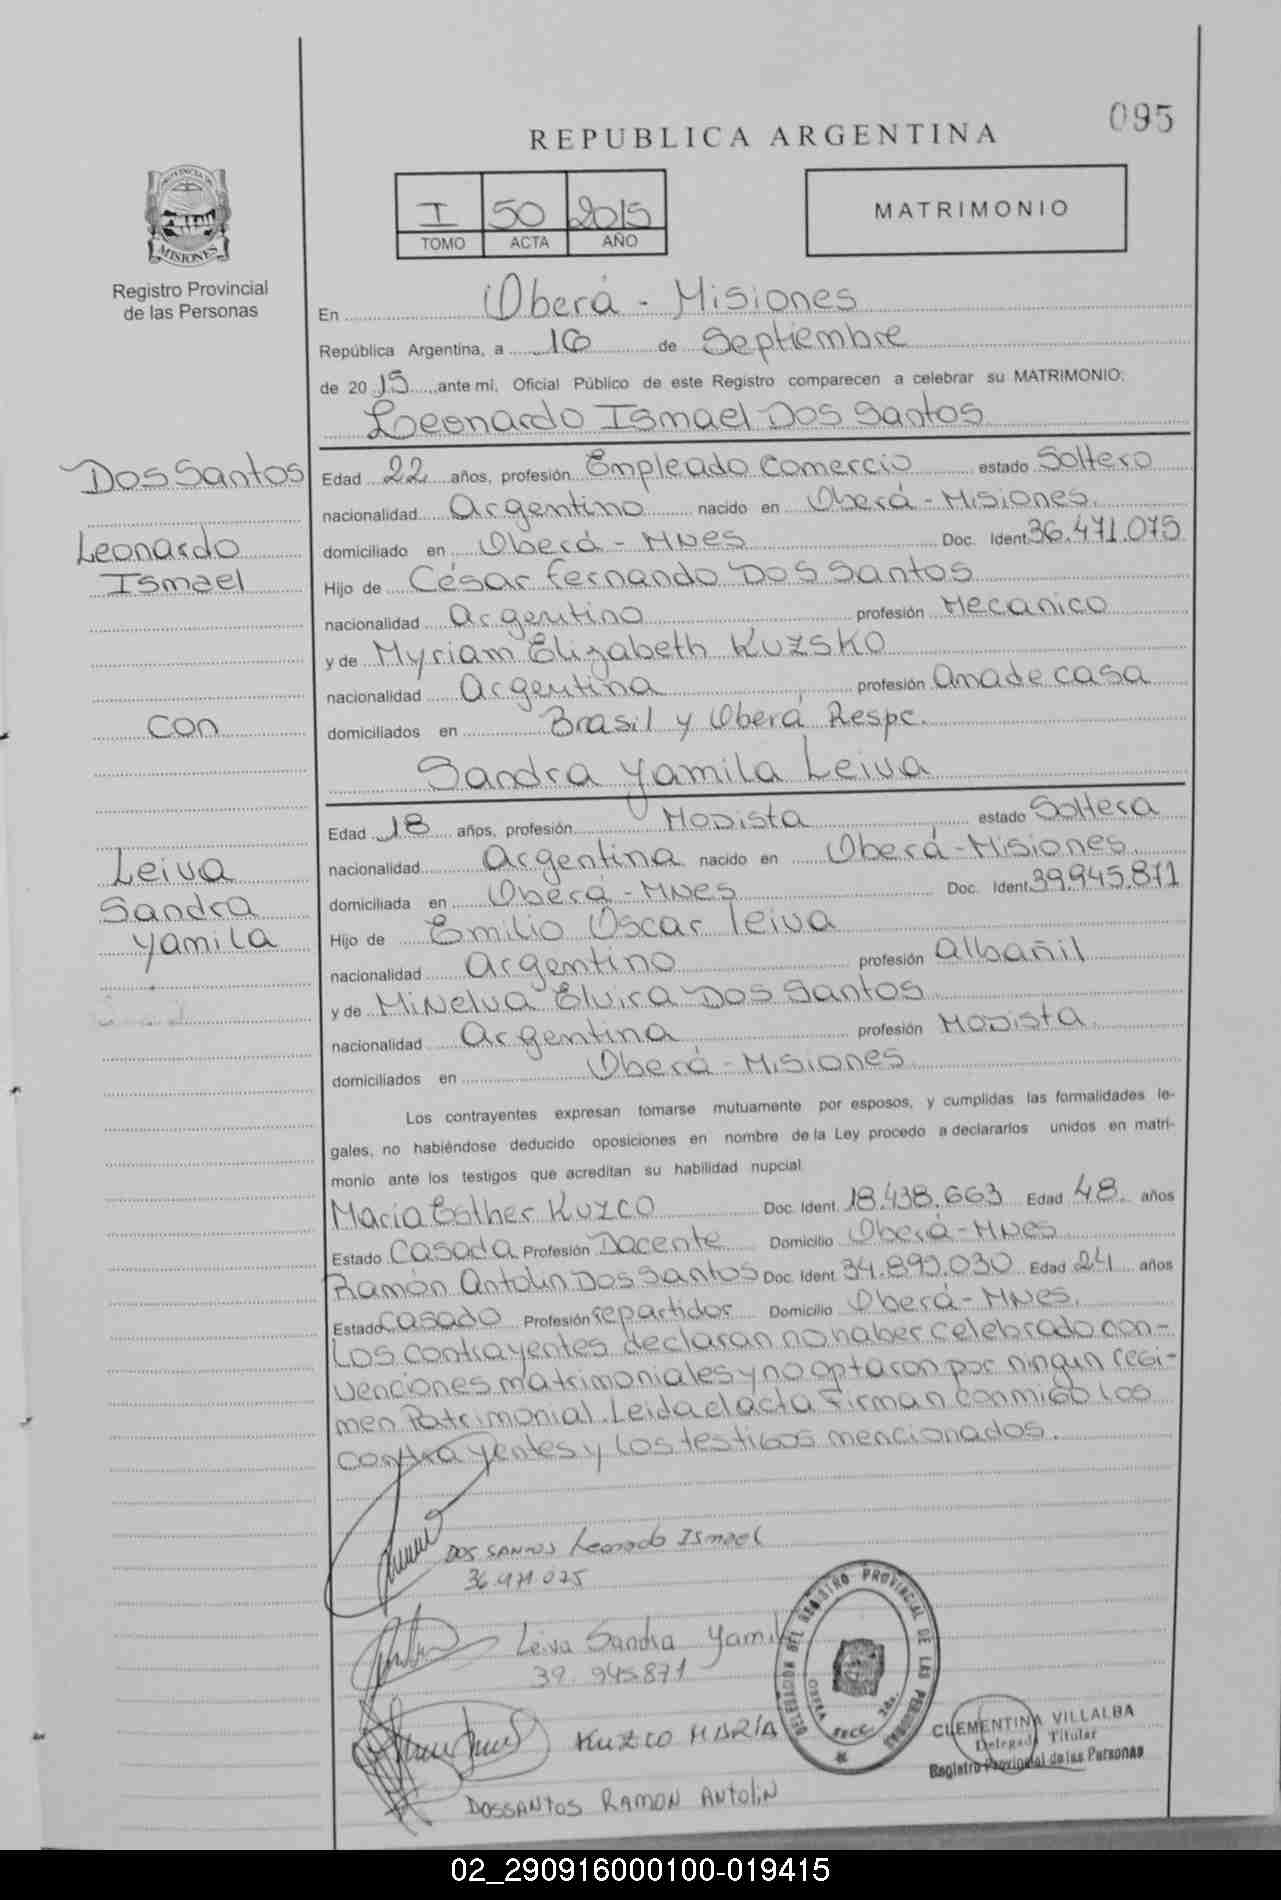 095
REPUBLICA ARGENTINA
I 50 2015
TOMO ACTA AÑO
MATRIMONIO
PROVINCIA DE
MISIONES
Registro Provincial
de las Personas
En Oberá - Misiones
República Argentina, a 16 de Septiembre
de 2015, ante mi, Oficial Público de este Registro comparecen a celebrar su MATRIMONIO:
Leonardo Ismael Dos Santos
Dos Santos
Leonardo
Ismael
con
Leiva
Sandra
Yamila
Edad 22 años, profesión Empleado Comercio estado Soltero
nacionalidad Argentino nacido en Oberá - Misiones.
domiciliado en Oberá - MNES Doc. Ident. 36.471.075
Hijo de César Fernando Dos Santos
nacionalidad Argentino profesión Mecanico
y de Myriam Elizabeth Kuzsko
nacionalidad Argentina profesión Ama de casa
domiciliados en Brasil y Oberá Respc.
Sandra Yamila Leiva
Edad 18 años, profesión Modista estado Soltera
nacionalidad Argentina nacido en Oberá - Misiones.
domiciliada en Oberá - MNES Doc. Ident. 39.945.871
Hijo de Emilio Oscar Leiva
nacionalidad Argentino profesión Albañil
y de Minelva Elvira Dos Santos
nacionalidad Argentina profesión Modista.
domiciliados en Oberá - Misiones.
Los contrayentes expresan tomarse mutuamente por esposos, y cumplidas las formalidades le-
gales, no habiéndose deducido oposiciones en nombre de la Ley procedo a declararlos unidos en matri-
monio ante los testigos que acreditan su habilidad nupcial
Maria Esther Kuzco Doc. Ident. 18.438.663 Edad 48. años
Estado Casada Profesión Docente Domicilio Oberá - MNES
Ramón Antolin Dos Santos Doc. Ident. 34.895.030 Edad 24 años
Estado Casado Profesión repartidor Domicilio Oberá - MNES.
Los contrayentes declaran no haber celebrado con-
venciones matrimoniales y no optaron por ningun regi-
men Patrimonial. Leida el acta Firman conmigo los
contrayentes y los testigos mencionados.
DOS SANTOS Leonardo ISmael
36.471.075
Leiva Sandra Yamil
39.945.871
KUZCO MARIA
DOSSANTOS RAMON ANTOLIN
DELEGACION DEL REGISTRO PROVINCIAL DE LAS PERSONAS
OBERA SECC. 2da.
CLEMENTINA VILLALBA
Delegada Titular
Registro Provincial de las Personas
02_290916000100-019415